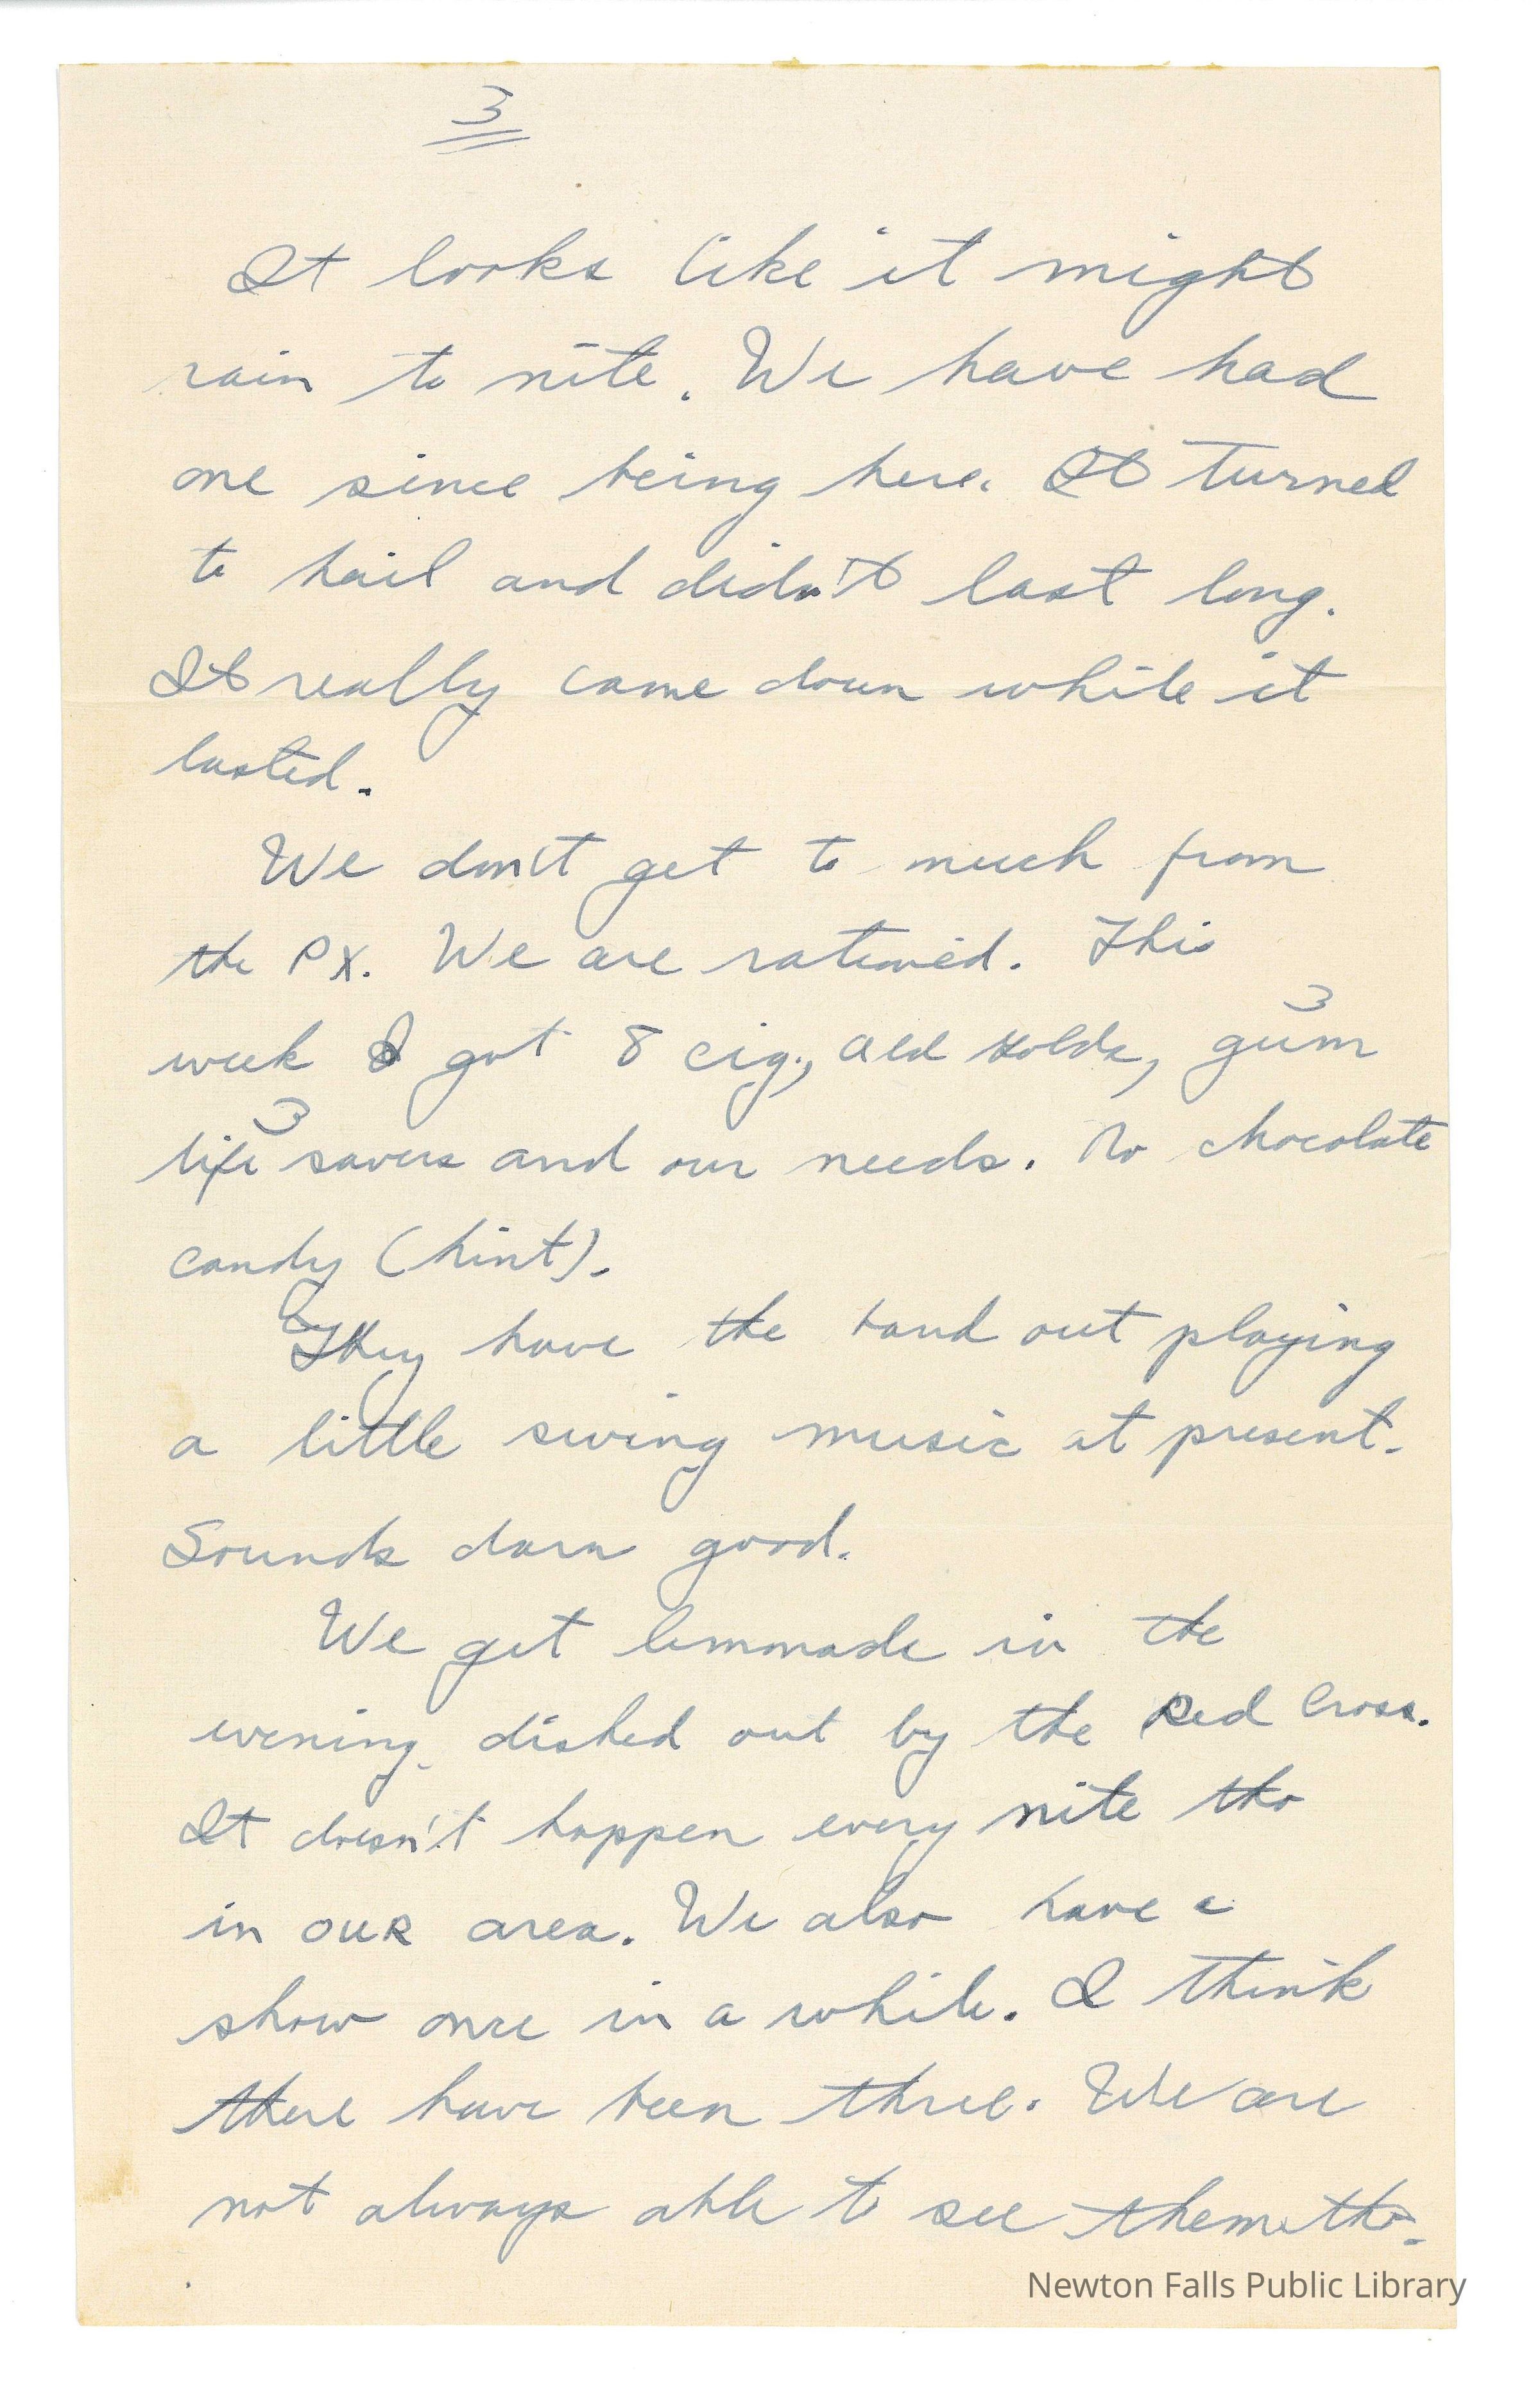 3
It looks like it might
rain to nite. We have had
one since being here. It turned
to hail and didn't last long.
It really came down while it
lasted.
We don't get to much from
the PX. We are rationed. This
week I got 8 cig., old golds, 3 gum
3 life savers and our needs. No chocolate
candy (hint).
They have the band out playing
a little swing music at present.
Sounds darn good.
We get lemonade in the
evening, dished out by the Red Cross.
It doesn't happen every nite tho
in OUR area. We also have a
show once in a while. I think
there have been three. We are
not always able to see them tho.
Newton Falls Public Library